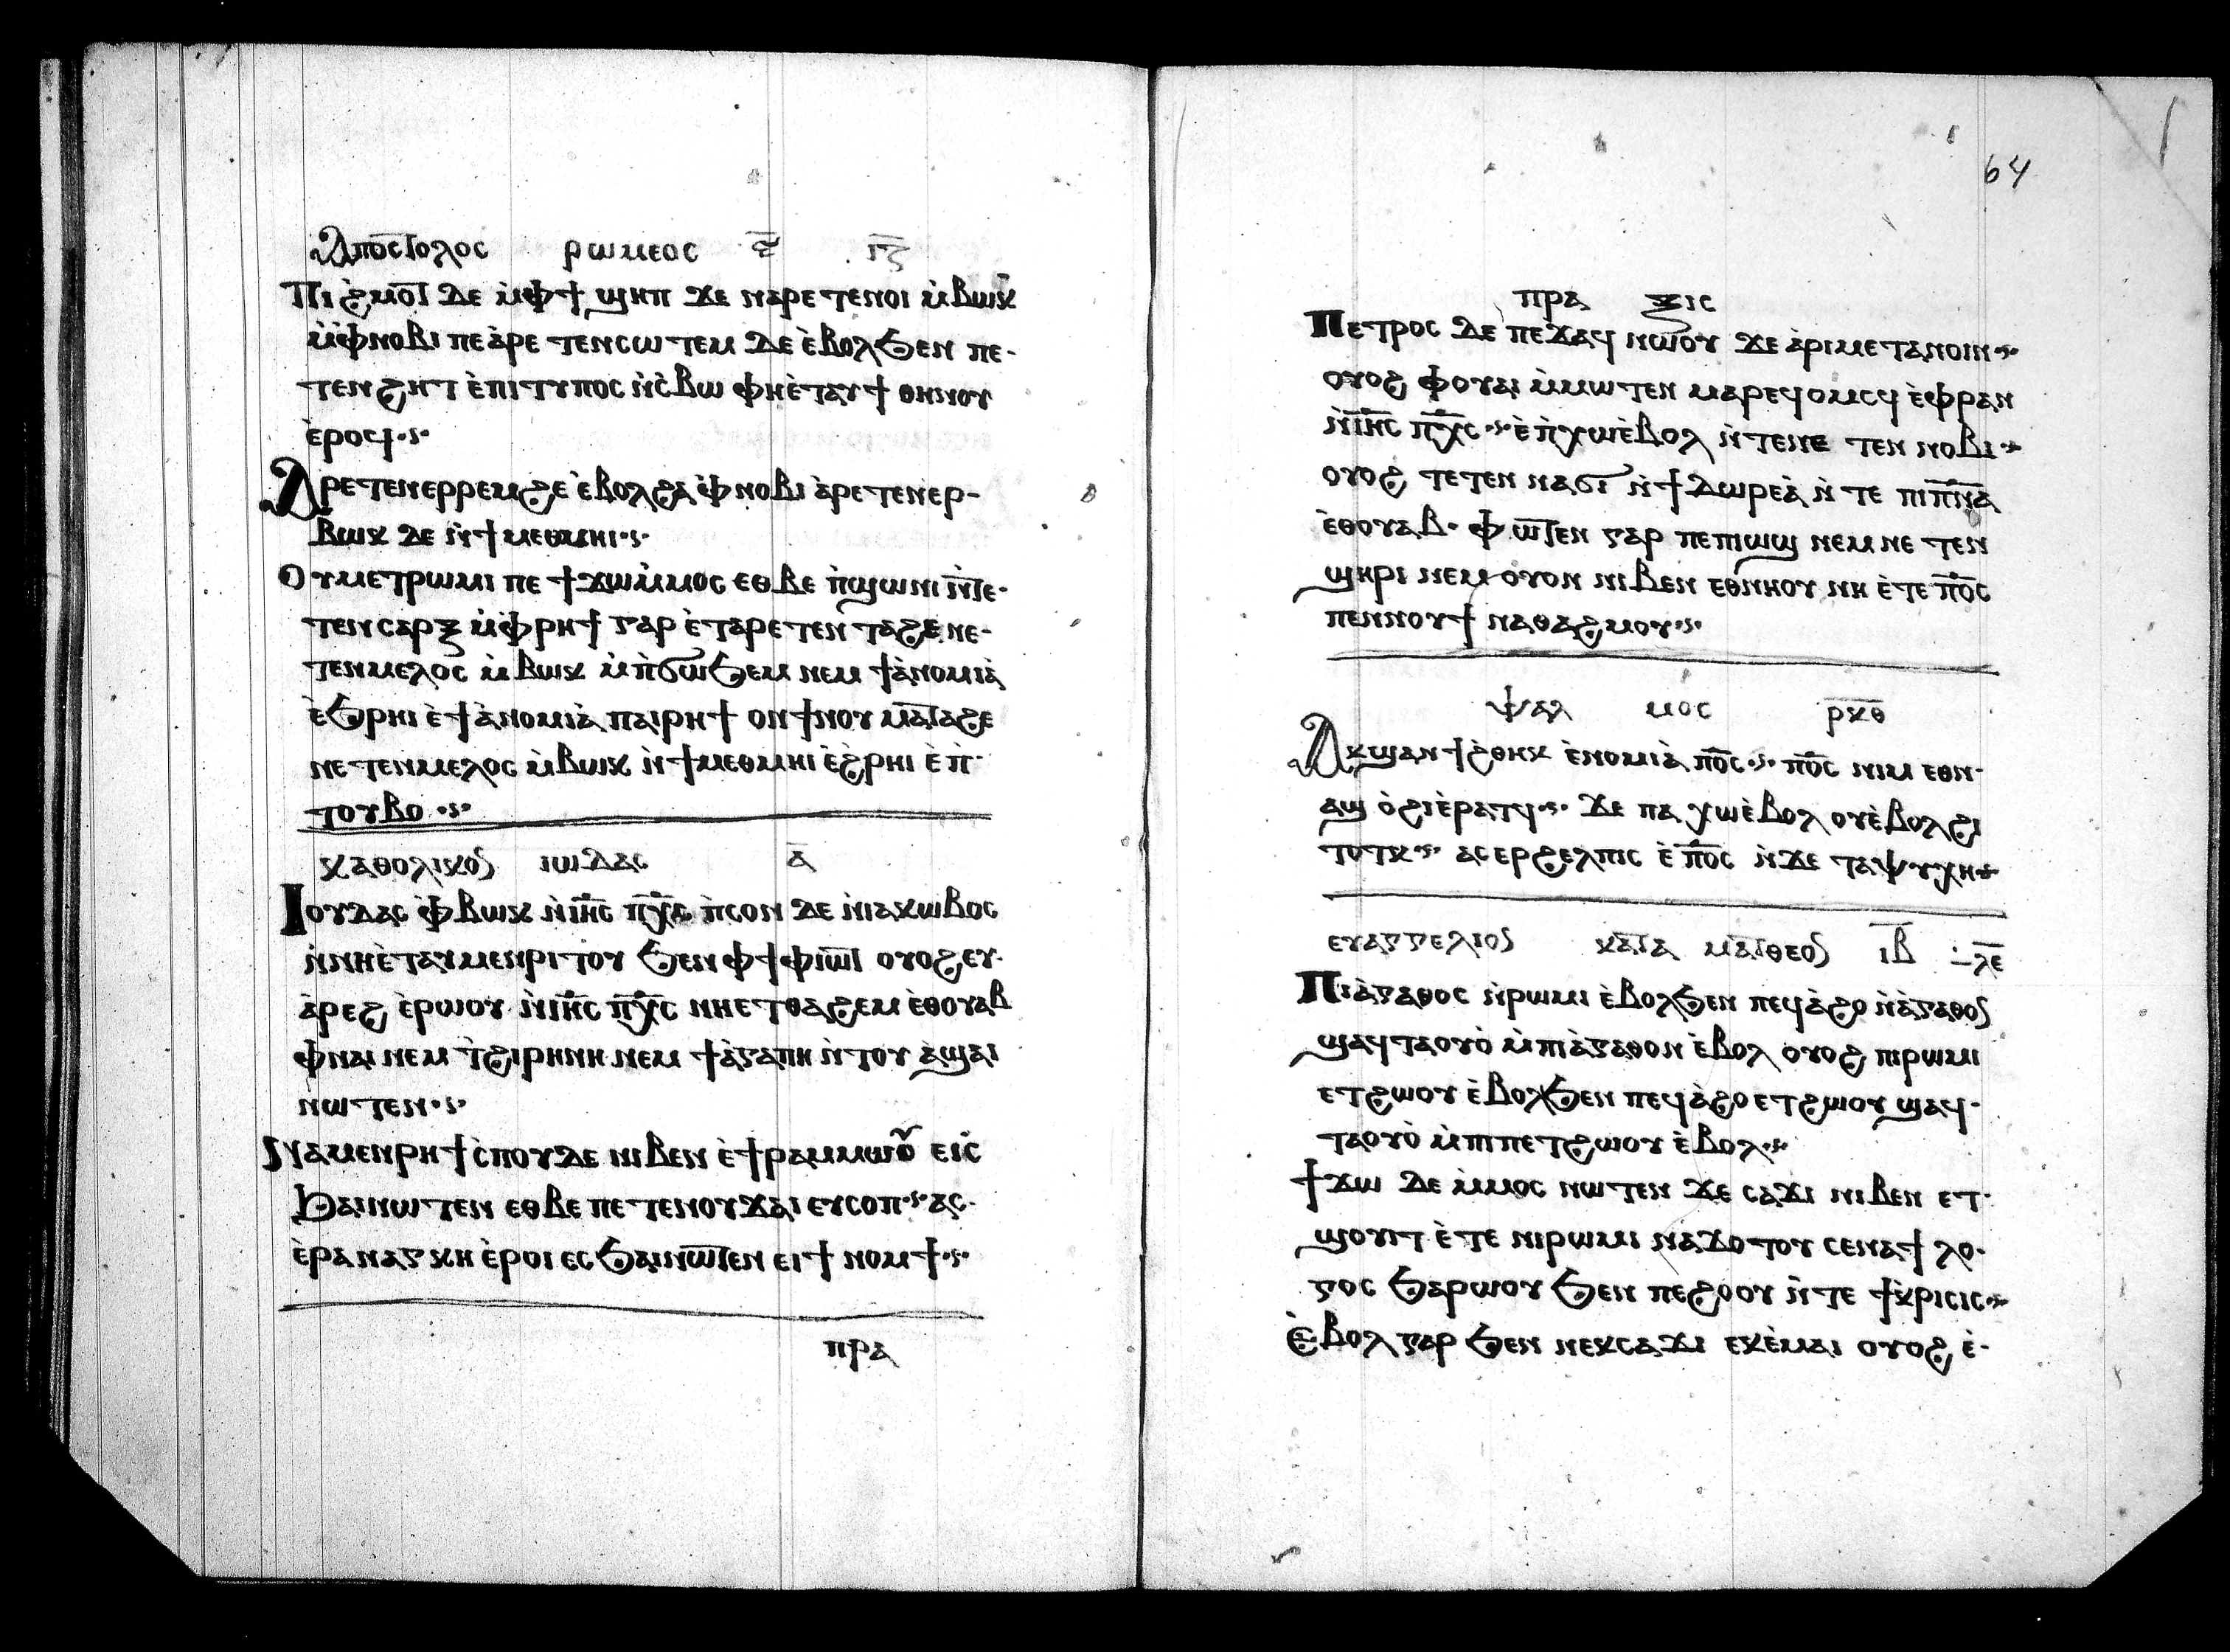 Ⲁⲡⲟⲥⲧⲟⲗⲟⲥ ⲣⲱⲙⲉⲟⲥ ⲓ̅ⲍ̅
Ⲡⲓϩⲙⲟⲧ ⲇⲉ ⲙ̀ⲫϯ ϣⲏⲡ ϫⲉ ⲛⲁⲣⲉ ⲧⲉⲛⲟⲓ ⲙ̀ⲃⲱⲕ
ⲙ̀ⲫⲛⲟⲃⲓ ⲡⲉ ⲁ̀ⲣⲉ ⲧⲉⲛⲥⲱⲧⲉⲙ ⲇⲉ ⲉ̀ⲃⲟⲗϧⲉⲛ ⲡⲉ-
ⲧⲉⲛϩⲏⲧ ⲉ̀ⲡⲓⲧⲩⲡⲟⲥ ⲛ̀ⲥ̀ⲃⲱ ⲫⲏⲉ̀ⲧⲁⲩϯ ⲑⲏⲛⲟⲩ
ⲉ̀ⲣⲟϥ·ⲋ·
Ⲁⲣⲉⲧⲉⲛⲉⲣⲣⲉⲙϩⲉ ⲉ̀ⲃⲟⲗϩⲁ ⲫ̀ⲛⲟⲃⲓ ⲁ̀ⲣⲉⲧⲉⲛⲉⲣ-
ⲃⲱⲕ ⲇⲉ ⲛ̀ϯⲙⲉⲑⲙⲏⲓ·ⲋ·
Ⲟⲩⲙⲉⲧⲣⲱⲙⲓ ⲡⲉ ϯϫⲱⲙ̀ⲙⲟⲥ ⲉⲑⲃⲉ ⲡ̀ϣⲱⲛⲓ ⲛ̀ⲧⲉ-
ⲧⲉⲛⲥⲁⲣⲝ ⲙ̀ⲫ̀ⲣⲏϯ ⲅⲁⲣ ⲉ̀ⲧⲁⲣⲉ ⲧⲉⲛ ⲧⲁϩⲉ ⲛⲉ-
ⲧⲉⲛⲙⲉⲗⲟⲥ ⲙ̀ⲃⲱⲕ ⲙ̀ⲡ̀ϭⲱϧⲉⲙ ⲛⲉⲙ ϯⲁ̀ⲛⲟⲙⲓⲁ̀
ⲉ̀ϧⲣⲏⲓ ⲉ̀ϯⲁ̀ⲛⲟⲙⲓⲁ̀ ⲡⲁⲓⲣⲏϯ ⲟⲛ ϯⲛⲟⲩ ⲙⲁⲧⲁϩⲉ
ⲛⲉⲧⲉⲛⲙⲉⲗⲟⲥ ⲙ̀ⲃⲱⲕ ⲛ̀ϯⲙⲉⲑⲙⲏⲓ ⲉ̀ϩ̀ⲣⲏⲓ ⲉ̀ⲡ̀-
ⲧⲟⲩⲃⲟ·ⲋ·
ⲕⲁⲑⲟⲗⲓⲕⲟⲥ ⲓⲱⲇⲁⲥ ⲁ̅
Ⲓⲟⲩⲇⲁⲥ ⲫ̀ⲃⲱⲕ ⲛ̀ⲓⲏ̅ⲥ̅ ⲡⲭ̅ⲥ̅ ⲡ̀ⲥⲟⲛ ⲇⲉ ⲛ̀ⲓⲁⲕⲱⲃⲟⲥ
ⲛ̀ⲛⲏⲉ̀ⲧⲁⲩⲙⲉⲛⲣⲓⲧⲟⲩ ϧⲉⲛ ⲫϯ ⲫⲓⲱⲧ ⲟⲩⲟϩ ⲉⲩ-
ⲁ̀ⲣⲉϩ ⲉ̀ⲣⲱⲟⲩ ⲛ̀ⲓⲏ̅ⲥ̅ ⲡⲭ̅ⲥ̅ ⲛⲏⲉⲧⲑⲁϩⲉⲙ ⲉ̀ⲑⲟⲩⲁⲃ
ⲫⲛⲁⲓ ⲛⲉⲙ ⲧ̀ϩⲓⲣⲏⲛⲏ ⲛⲉⲙ ϯⲁ̀ⲅⲁⲡⲏ ⲛ̀ⲧⲟⲩ ⲁ̀ϣⲁⲓ
ⲛⲱⲧⲉⲛ·ⲋ·
Ⲛⲁⲙⲉⲛⲣⲏϯ ⲥ̀ⲡⲟⲩⲇⲉ ⲛⲓⲃⲉⲛ ⲉ̀ϯⲣⲁⲙⲙⲱⲟⲩ ⲉⲓⲥ̀
ϧⲁⲓⲛⲱⲧⲉⲛ ⲉⲑⲃⲉ ⲡⲉⲧⲉⲛⲟⲩϫⲁⲓ ⲉⲩⲥⲟⲡ·ⲋ· ⲁⲥ-
ⲉ̀ⲣⲁⲛⲁⲅⲕⲏ ⲉ̀ⲣⲟⲓ ⲉⲥϧⲁⲓⲛⲱⲧⲉⲛ ⲉⲓϯ ⲛⲟⲙϯ·ⲋ·
ⲡⲣⲁ
64
ⲡⲣⲁ ⲝⲓⲥ
Ⲡⲉⲧⲣⲟⲥ ⲇⲉ ⲡⲉϫⲁϥ ⲛⲱⲟⲩ ϫⲉ ⲁ̀ⲣⲓⲙⲉⲧⲁⲛⲟⲓⲛ·ⲋ·
ⲟⲩⲟϩ ⲫⲟⲩⲁⲓ ⲙ̀ⲙⲱⲧⲉⲛ ⲙⲁⲣⲉϥⲟⲙⲥϥ ⲉ̀ⲫⲣⲁⲛ
ⲛ̀ⲓⲏ̅ⲥ̅ ⲡⲭ̅ⲥ̅·ⲋ· ⲉ̀ⲡ̀ⲭⲱⲉ̀ⲃⲟⲗ ⲛ̀ⲧⲉⲛⲉ ⲧⲉⲛ ⲛⲟⲃⲓ·ⲋ·
ⲟⲩⲟϩ ⲧⲉⲧⲉⲛ ⲛⲁϭⲓ ⲛ̀ϯⲇⲱⲣⲉⲁ̀ ⲛ̀ⲧⲉ ⲡⲓⲡ̅ⲛ̅ⲁ̅
ⲉ̀ⲑⲟⲩⲁⲃ· ⲫⲱⲧⲉⲛ ⲅⲁⲣ ⲡⲉ ⲡⲓⲱϣ ⲛⲉⲙ ⲛⲉ ⲧⲉⲛ
ϣⲏⲣⲓ ⲛⲉⲙ ⲟⲩⲟⲛ ⲛⲓⲃⲉⲛ ⲉⲑⲛⲏⲟⲩ ⲛⲏ ⲉ̀ⲧⲉ ⲡ̅ⲟ̅ⲥ̅
ⲡⲉⲛⲛⲟⲩϯ ⲛⲁⲑⲁϩⲙⲟⲩ·ⲋ·
ⲯⲁⲗ ⲙⲟⲥ ⲣ̅ⲕ̅ⲑ̅
Ⲁⲕϣⲁⲛϯϩ̀ⲑⲏⲕ ⲉ̀ⲛⲟⲙⲓⲁ̀ ⲡ̅ⲟ̅ⲥ̅·ⲋ· ⲡ̅ⲟ̅ⲥ̅ ⲛⲓⲙ ⲉⲑⲛ-
ⲁϣ ⲟ̀ϩⲓⲉ̀ⲣⲁⲧϥ·ⲋ· ϫⲉ ⲡⲁ ⲭⲱⲉ̀ⲃⲟⲗ ⲟⲩⲉ̀ⲃⲟⲗϩⲓ
ⲧⲟⲧⲕ·ⲋ· ⲁⲥⲉⲣϩⲉⲗⲡⲓⲥ ⲉ̀ⲡ̅ⲟ̅ⲥ̅ ⲛ̀ϫⲉ ⲧⲁⲯⲩⲭⲏ·ⲋ·
ⲉⲩⲁⲅⲅⲉⲗⲓⲟⲥ ⲕⲁⲧⲁ ⲙⲁⲧⲑⲉⲟⲥ ⲓ̅ⲃ̅ ⲗ̅ⲉ̅
Ⲡⲓⲁ̀ⲅⲁⲑⲟⲥ ⲛ̀ⲣⲱⲙⲓ ⲉ̀ⲃⲟⲗϧⲉⲛ ⲡⲉϥⲁ̀ϩⲟ ⲛ̀ⲁ̀ⲅⲁⲑⲟⲥ
ϣⲁϥⲧⲁⲟⲩⲟ̀ ⲙ̀ⲡⲓⲁ̀ⲅⲁⲑⲟⲛ ⲉ̀ⲃⲟⲗ ⲟⲩⲟϩ ⲡⲓⲣⲱⲙⲓ
ⲉⲧϩⲱⲟⲩ ⲉ̀ⲃⲟⲗϧⲉⲛ ⲡⲉϥⲁ̀ϩⲟ ⲉⲧϩⲱⲟⲩ ϣⲁϥ-
ⲧⲁⲟⲩⲟ̀ ⲙ̀ⲡⲓⲡⲉⲧϩⲱⲟⲩ ⲉ̀ⲃⲟⲗ·ⲋ·
ϯϫⲱ ⲇⲉ ⲙ̀ⲙⲟⲥ ⲛⲱⲧⲉⲛ ϫⲉ ⲥⲁϫⲓ ⲛⲓⲃⲉⲛ ⲉⲧ-
ϣⲟⲩⲓⲧ ⲉ̀ⲧⲉ ⲛⲓⲣⲱⲙⲓ ⲛⲁϫⲟⲧⲟⲩ ⲥⲉⲛⲁϯ ⲗⲟ-
ⲅⲟⲥ ϧⲁⲣⲱⲟⲩ ϧⲉⲛ ⲡⲉϩⲟⲟⲩ ⲛ̀ⲧⲉ ϯⲕⲣⲓⲥⲓⲥ·ⲋ·
Ⲉ̀ⲃⲟⲗ ⲅⲁⲣ ϧⲉⲛ ⲛⲉⲕⲥⲁϫⲓ ⲉⲕⲉ̀ⲙⲁⲓ ⲟⲩⲟϩ ⲉ̀-